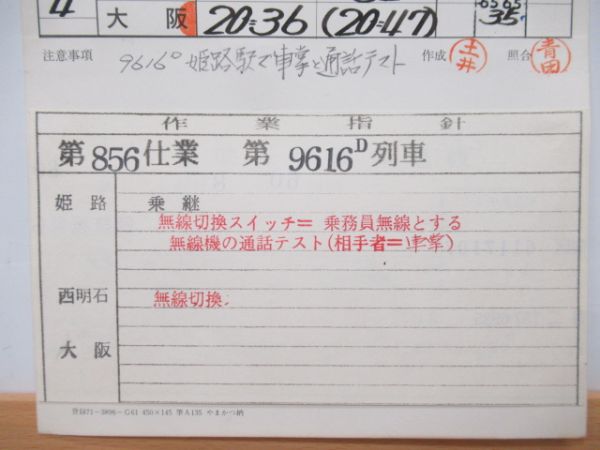 4 大阪 20=36 (20=47) 65 65 35
注意事項 9616D 姫路駅で車掌と通話テスト 作成 土井 照合 青田
作業指針
第856仕業 第9616D列車
姫路 乗継
無線切換スイッチ=乗務員無線とする
無線機の通話テスト(相手者=車掌)
西明石 無線切換.
大阪
登録71-3806-G61 450×145 筆A135 やまかつ納